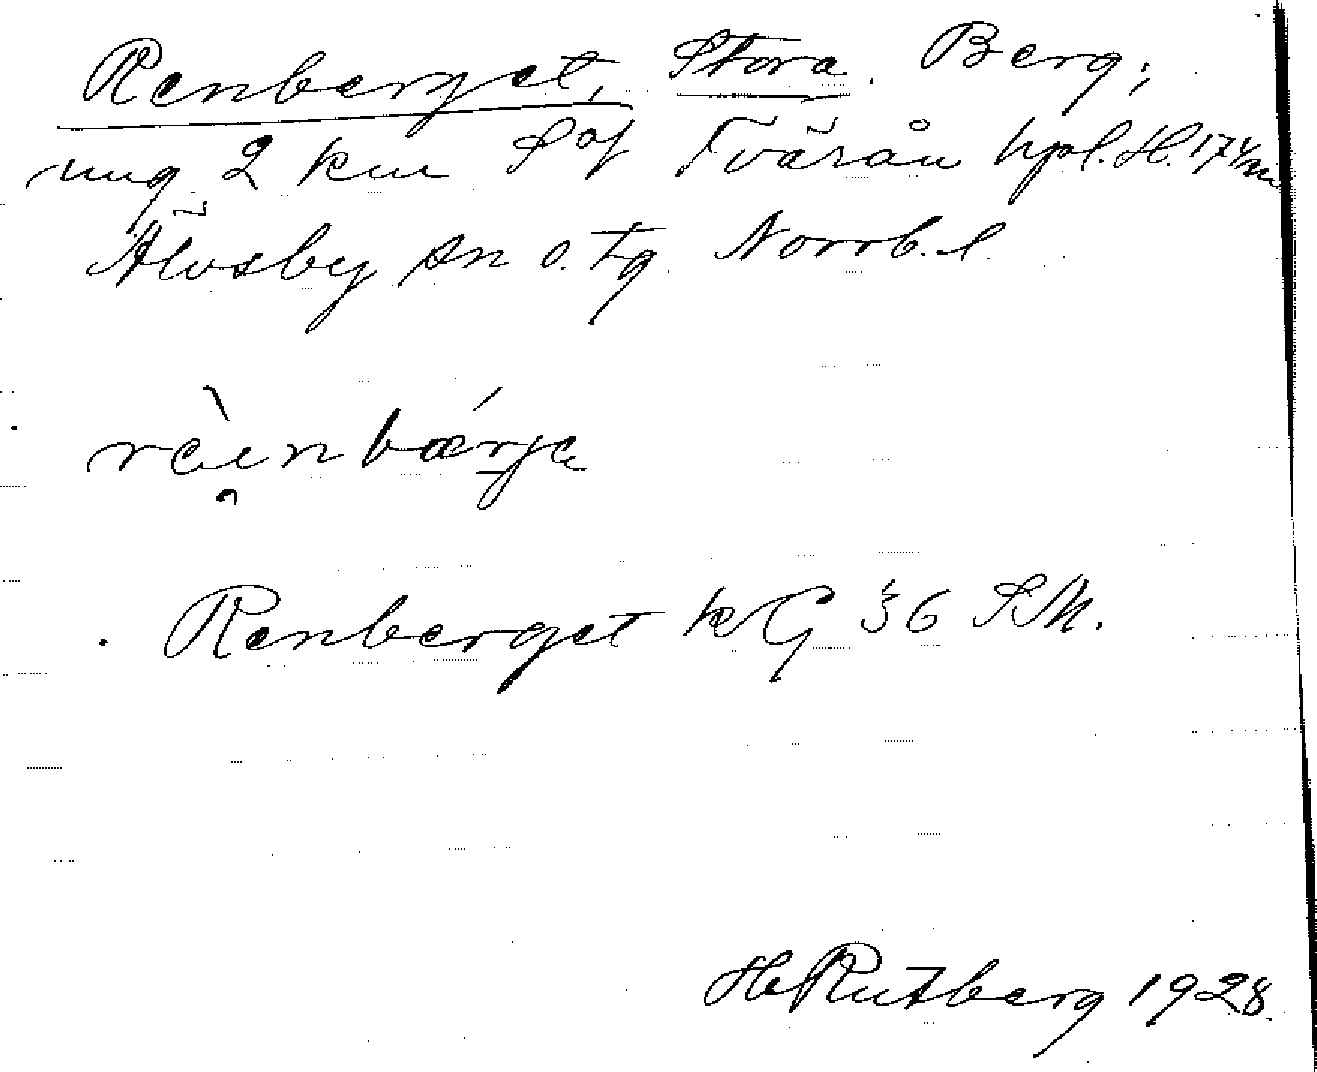 Renberget, Stora. Berg;
ung 2 km S of Tvärån hpl. H. 174 m
Älvsby sn o. tg. Norrb. l
rèinbǽrjɑ
Renberget kG §6 SM.
H Rutberg 1928